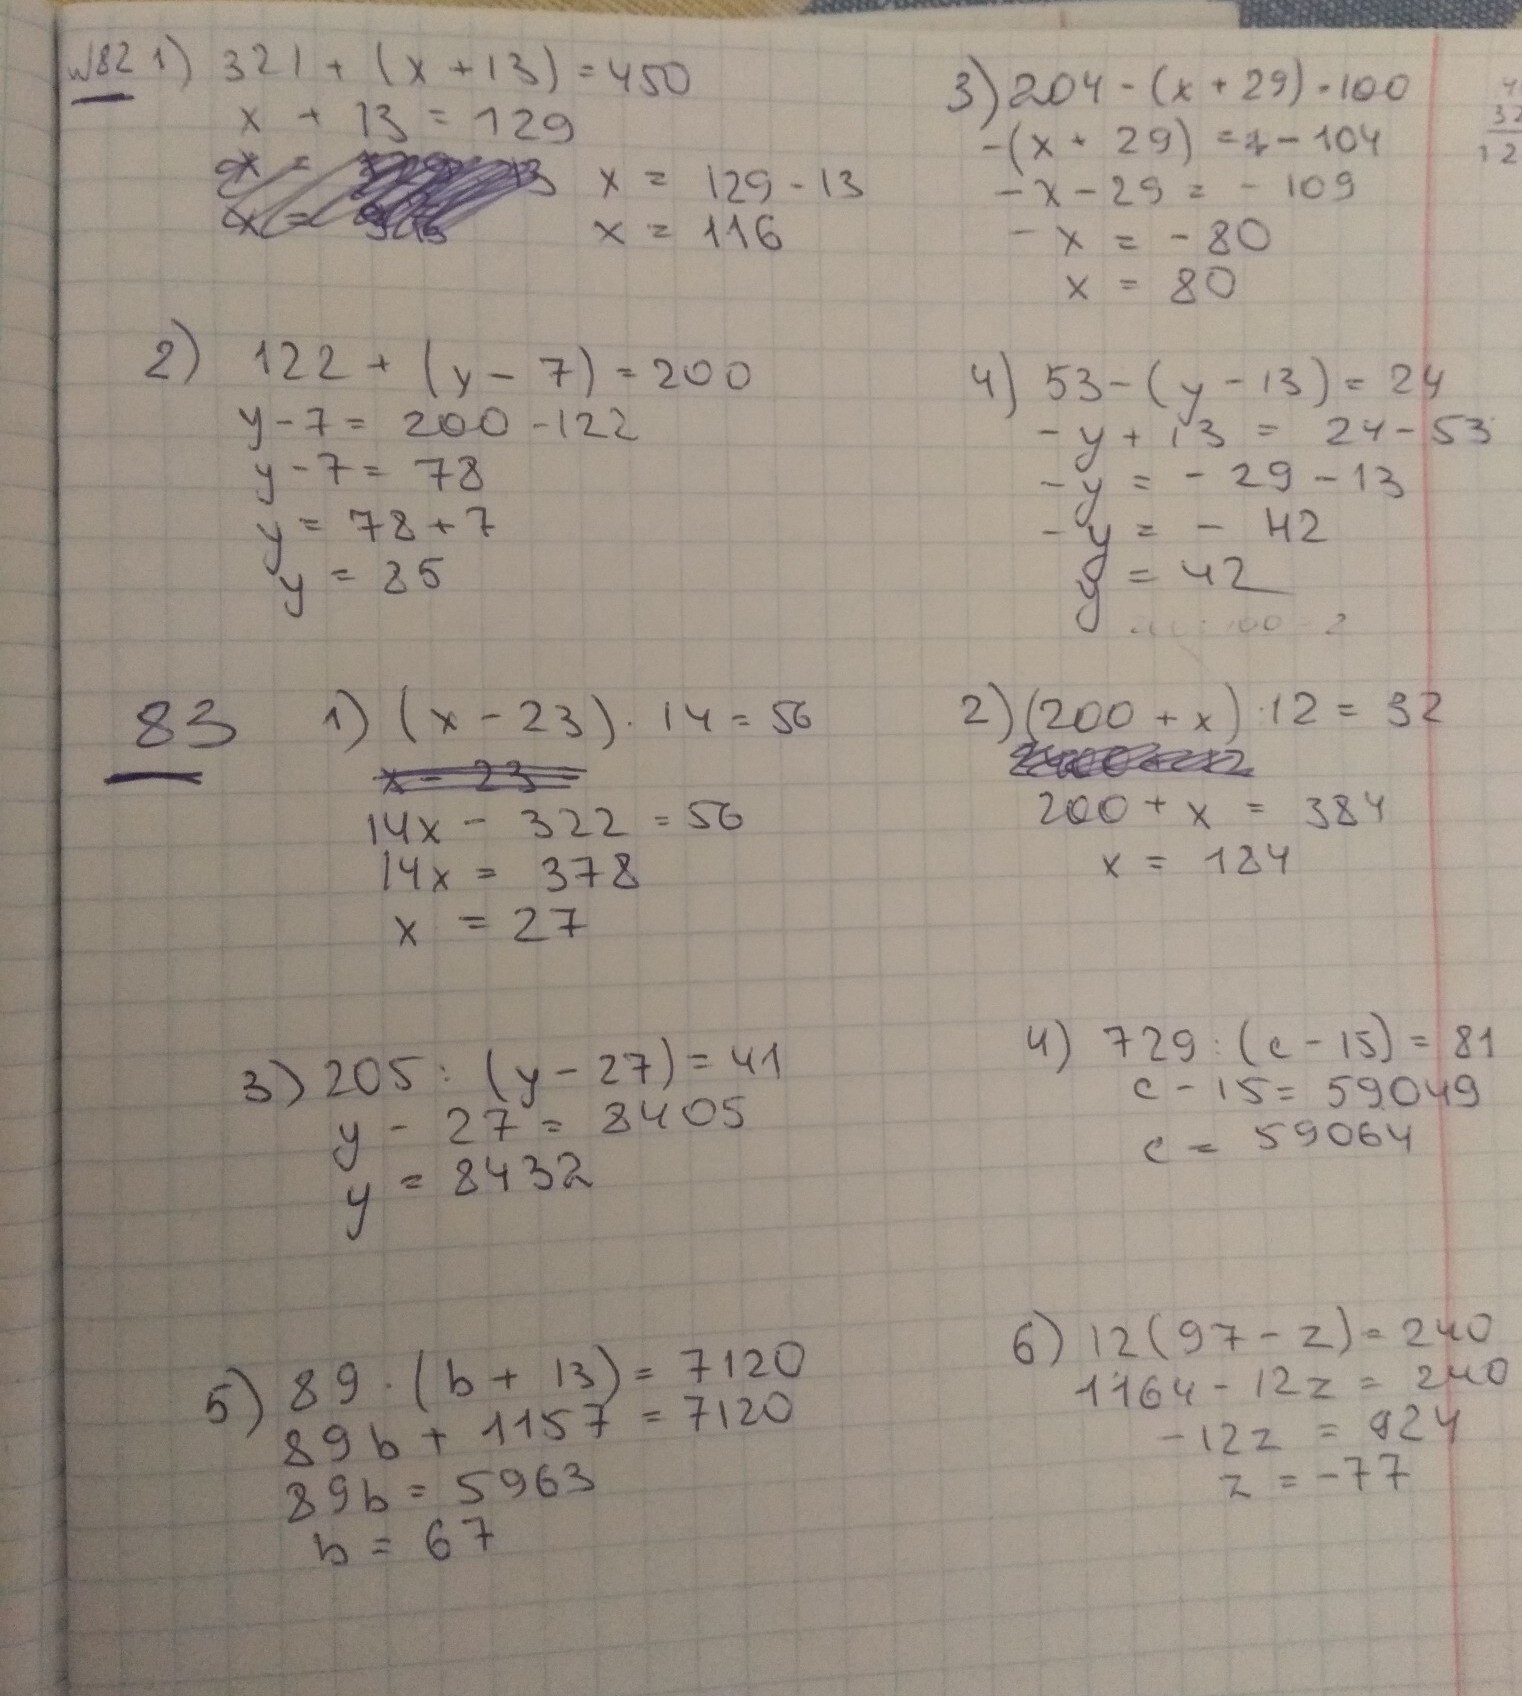 №82 1) 321 + (x + 13) = 450
x + 13 = 129
x = 129 - 13
x = 116
3) 204 - (x + 29) = 100
-(x + 29) = - 104
- x - 29 = - 109
- x = - 80
x = 80
2) 122 + (y - 7) = 200
y - 7 = 200 - 122
y - 7 = 78
y = 78 + 7
y = 85
4) 53 - (y - 13) = 24
- y + 13 = 24 - 53
- y = - 29 - 13
- y = - 42
y = 42
83 1) (x - 23) · 14 = 56
x - 23 =
14x - 322 = 56
14x = 378
x = 27
2) (200 + x) : 12 = 32
200 + x = 384
x = 184
3) 205 : (y - 27) = 41
y - 27 = 8405
y = 8432
4) 729 : (c - 15) = 81
c - 15 = 59049
c = 59064
5) 89 · (b + 13) = 7120
89b + 1157 = 7120
89b = 5963
b = 67
6) 12(97 - z) = 240
1164 - 12z = 240
- 12z = 924
z = -77